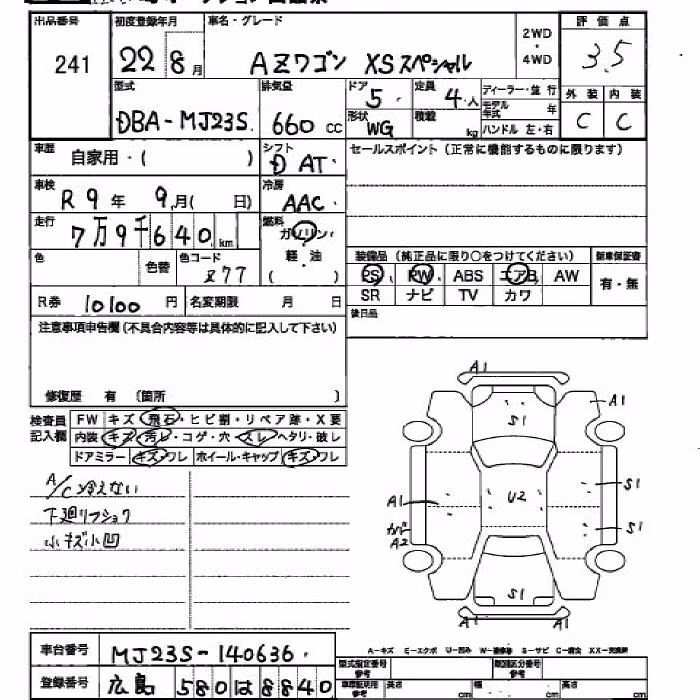 出品番号 初度登録年月 車名・グレード 2WD・4WD 評価点
241 22 8月 AZワゴン XSスペシャル 3.5
型式 排気量 ドア 5. 定員 4.人 ディーラー・並行 外装 内装
DBA-MJ23S. 660cc 形状 WG 積載 kg モデル年式 年 ハンドル 左・右 C C
車歴 自家用・( ) シフト D AT. セールスポイント(正常に機能するものに限ります)
車検 R9年 9.月( 日) 冷房 AAC.
走行 7万9千640.km 燃料 ガソリン・軽・油( )
色 色替 色コード Z77 装備品(純正品に限り○をつけてください) 新車保証書
PS PW ABS エアB AW 有・無
R券 10100円 名変期限 月 日 SR ナビ TV カワ
注意事項申告欄(不具合内容等は具体的に記入して下さい) 後日品
修復歴 有 (箇所 )
検査員記入欄 FW キズ・飛石・ヒビ割・リペア跡・X要
内装 キズ・汚レ・コゲ・穴・スレ・ヘタリ・破レ
ドアミラー キズ・ワレ ホイール・キャップ キズ・ワレ
A/C冷えない
下廻リフショク
小キズ小凹
A1
S1 A1
A1 U2 S1
カド A2 S1
S1
A1 A1
A-キズ E-エクボ U-凹み W-補修跡 S-サビ C-腐食 XX-交換済
車台番号 MJ23S-140636. 型式指定番号 参考 類別区分番号 参考
登録番号 広島 580は8840 車庫証明用 参考 長さ cm 幅 cm 高さ cm